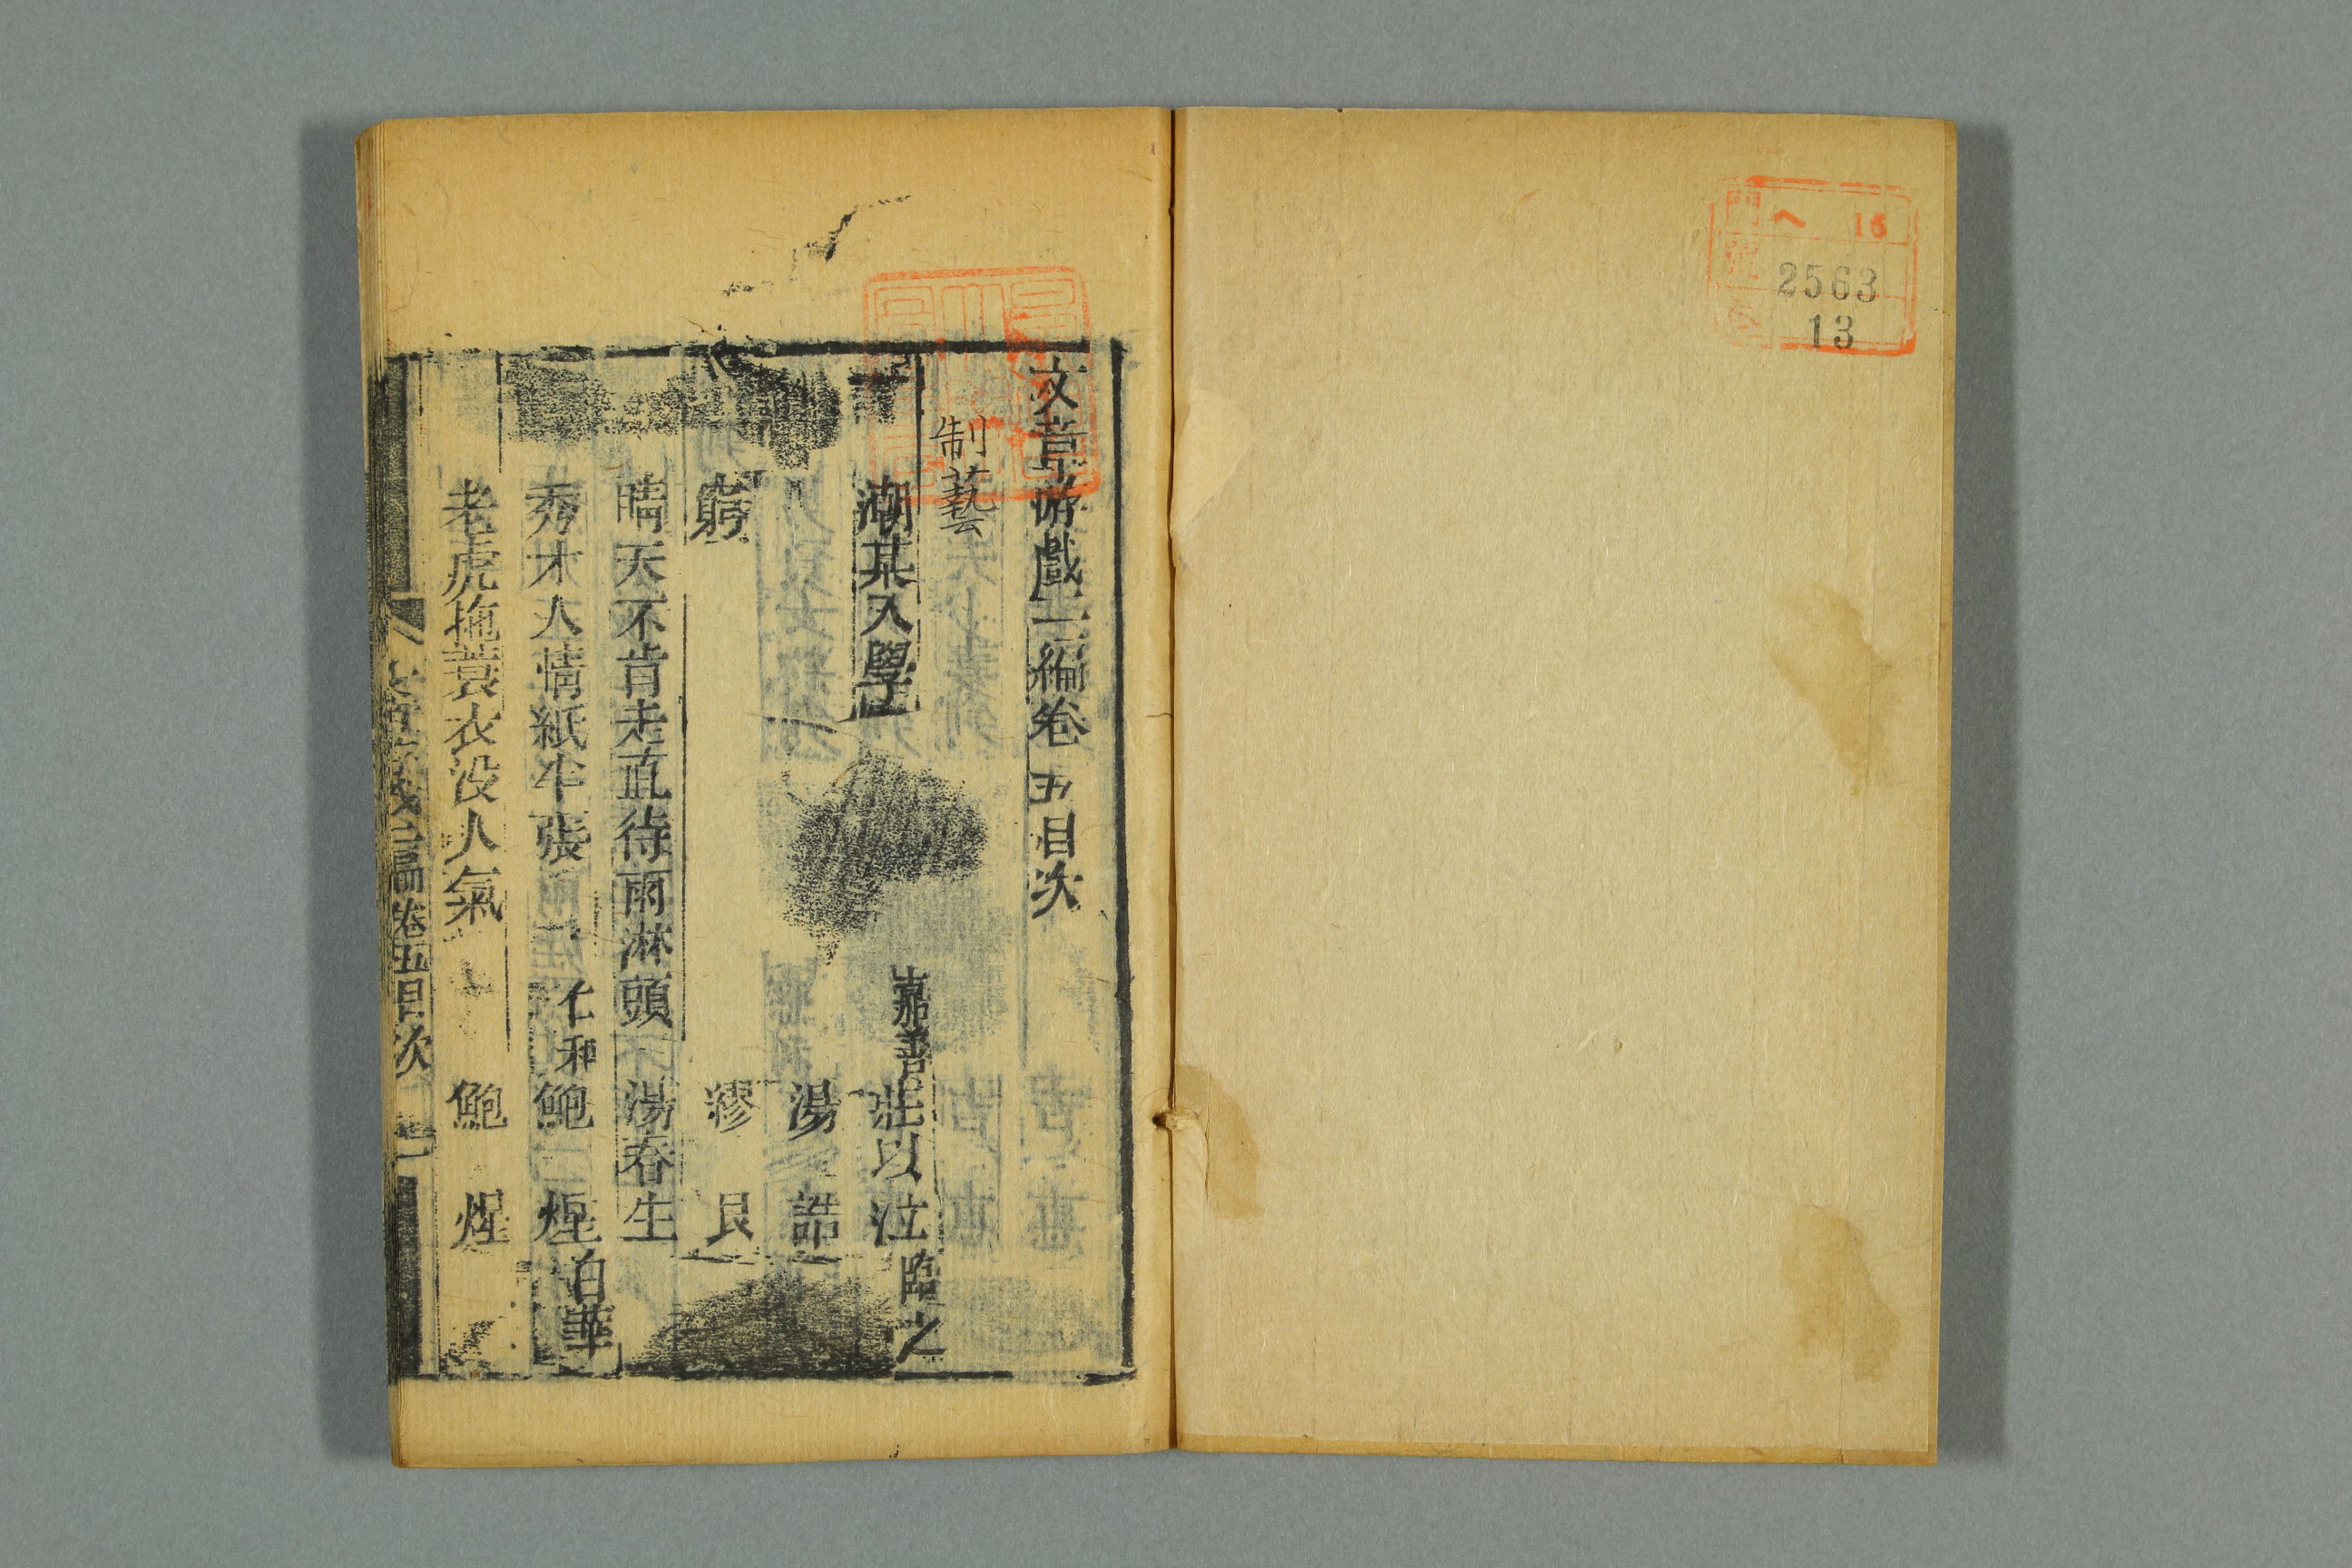 門 ヘ 16
號 2563
卷 13
文章游戲二編卷五目次
制藝
潮某入學 嘉善 莊以泣 臨之
八 湯誥
窮 繆艮
晴天不肯走直待雨淋頭 湯春生
秀才人情紙半張 仁和 鮑煋 白華
老虎拖蓑衣没人氣 鮑煋
文章游戲二編 卷五目次 一